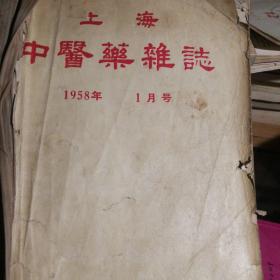 上海
中醫藥雜誌
1958年 1月号